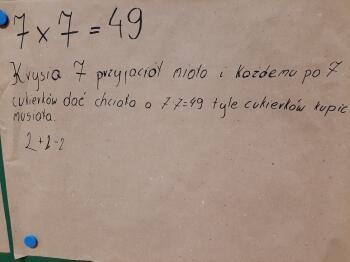 7 x 7 = 49
Krysia 7 przyjaciół miała i każdemu po 7
cukierków dać chciała a 7·7=49 tyle cukierków kupić
musiała.
2+2=2